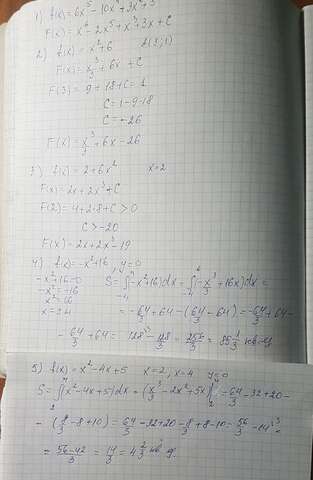 1) f(x)=6x⁵-10x⁴+3x²+3
F(x)=x⁶-2x⁵+x³+3x+C
2) f(x)=x²+6 A(3;1)
F(x)=x³/3+6x+C
F(3)=9+18+C=1
C=1-9-18
C=-26
F(x)=x³/3+6x-26
3) f(x)=2+6x² x=2
F(x)=2x+2x³+C
F(2)=4+2·8+C>0
C>-20
F(x)=2x+2x³-19
4) f(x)=-x²+16, y=0
-x²+16=0 S=∫₋₄⁴(-x²+16)dx=∫₋₄⁴(-x³/3+16x)dx=
-x²=-16
x²=16
x=±4 =-64/3+64-(64/3-64)=-64/3+64-
-64/3+64=128-128/3=256/3=85 1/3 кв.ед
5) f(x)=x²-4x+5 x=2, x=4 y=0
S=∫₂⁴(x²-4x+5)dx=(x³/3-2x²+5x)|₂⁴=64/3-32+20-
-(8/3-8+10)=64/3-32+20-8/3+8-10=56/3-14=
=56-42/3=14/3=4 2/3 кв.ед.